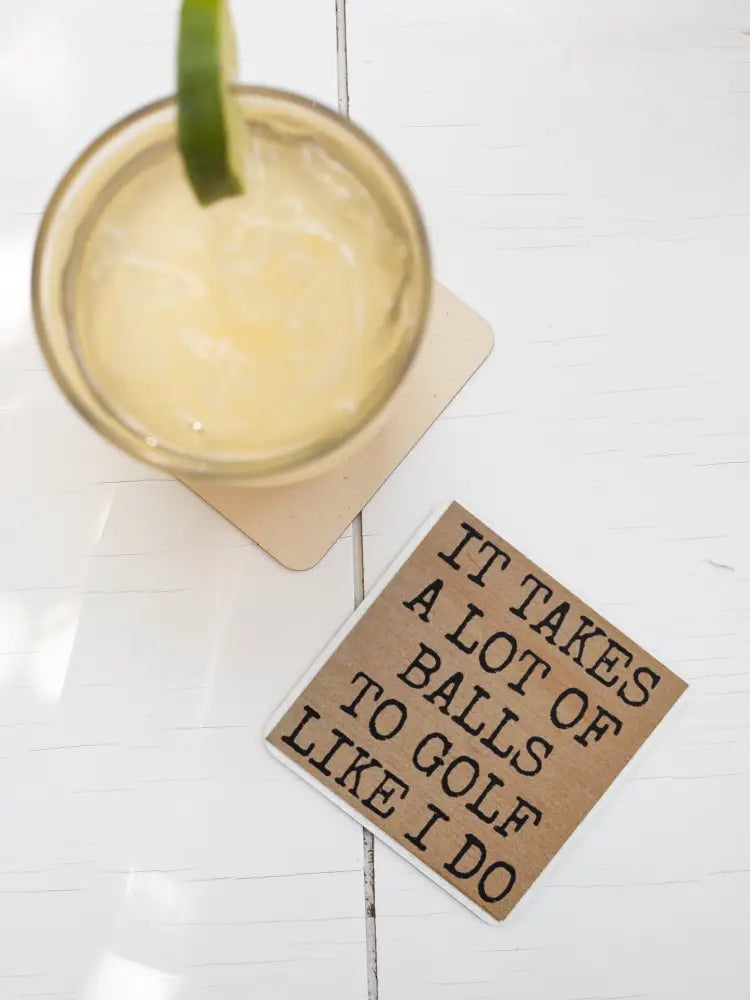 IT TAKES
A LOT OF
BALLS
TO GOLF
LIKE I DO